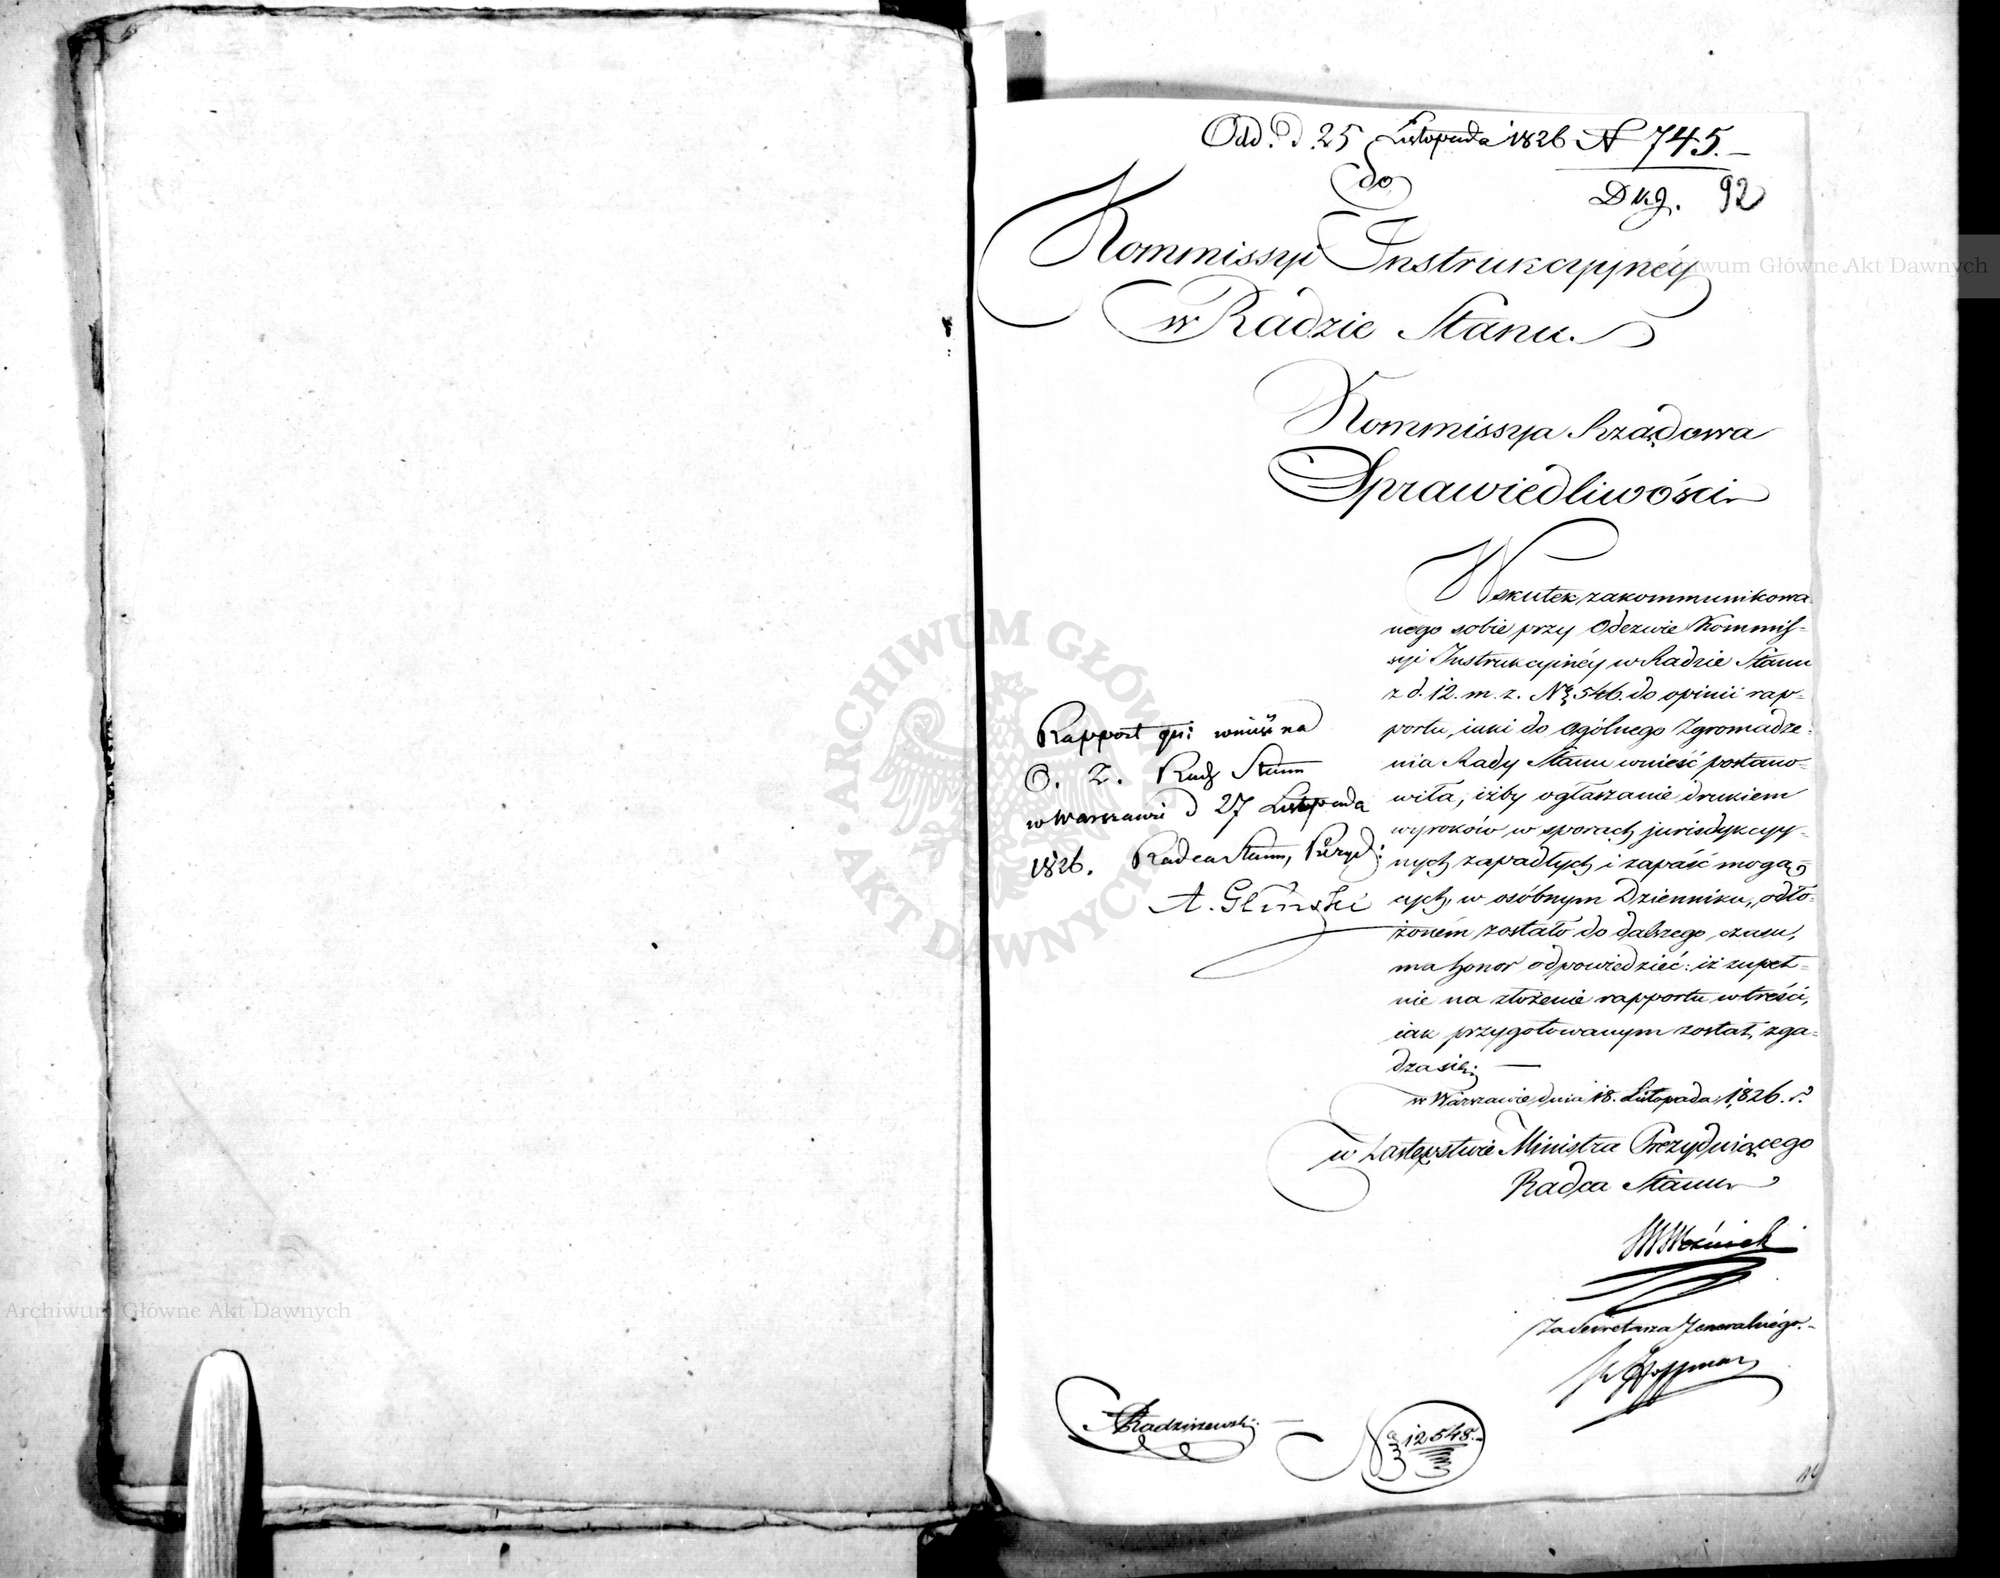 Odd. d. 25 Listopada 1826 N 745.
Dkg. 92
do
Kommissyi Instrukcyjnéy
w Radzie Stanu.
Kommissya Rządowa
Sprawiedliwości
Wskutek zakommunikowa
nego sobie przy Odezwie Kommis-
syi Instrukcyinéy w Radzie Stanu
z d. 12. m. z. No 546. do opinii rap-
portu, iaki do Ogólnego Zgromadze-
nia Rady Stanu wnieść postano-
wiła, iżby ogłaszanie drukiem
wyroków w sporach jurisdykcyy-
nych zapadłych i zapaść mogą-
cych, w osóbnym Dzienniku, odło-
żoném zostało do dalszego czasu,
ma honor odpowiedzieć: iż zupeł-
nie na złożenie rapportu w treści,
iak przygotowanym został, zga-
dza się.
w Warszawie dnia 18. Listopada 1826. r.
w Zastępstwie Ministra Prezyduiącego
Radca Stanu
M Woźnicki
Za Sekretarza Jeneralnégo.
Hoffman
Rapport wniesiono na
O. Z. Rady Stanu
w Warszawie d 27 Listopada
1826. Radca Stanu, Prezyd:
A. Gliński
Radziszewski
No 12548.
Archiwum Główne Akt Dawnych
Archiwum Główne Akt Dawnych
ARCHIWUM GŁÓWNE AKT DAWNYCH